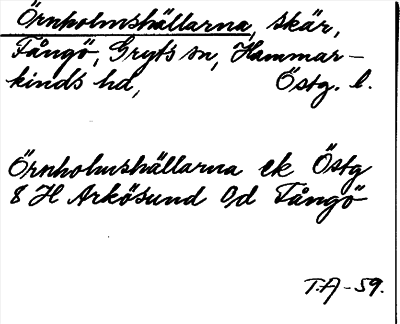 Örnholmshällarna, skär,
Fångö, Gryts sn, Hammar-
kinds hd, Östg. l.
Örnholmshällarna ek Östg
8 H Arkösund O/d Fångö
T.A-59.